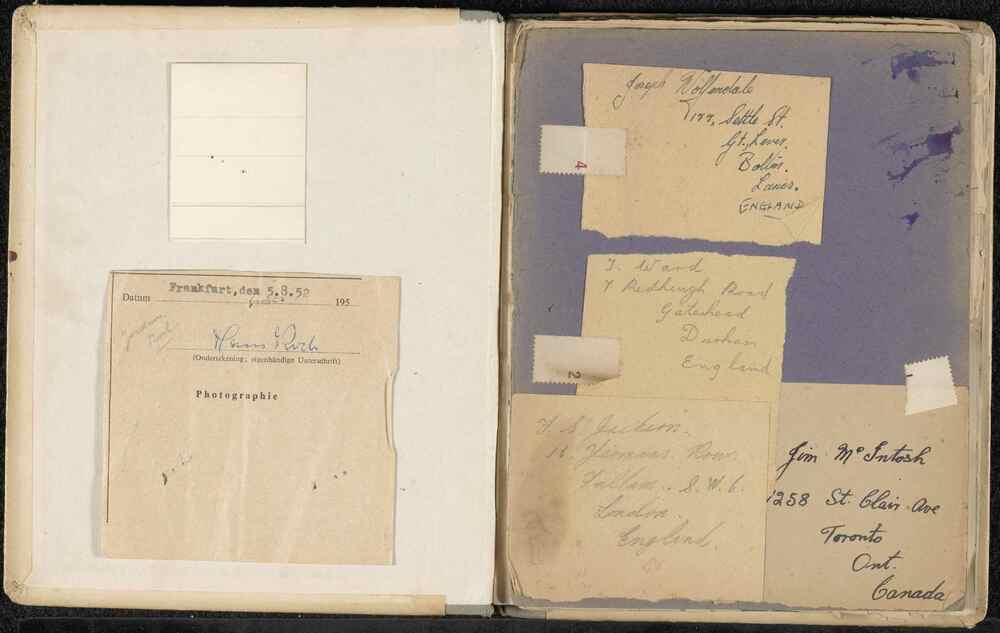 Frankfurt, den 5.8.52
Datum 195
Hans Koch
(Onderteekening; eigenhändige Unterschrift)
Photographie
Joseph Wolfendale
177, Settle St.
Gt. Lever.
Bolton.
Lancs.
ENGLAND
4
J. Ward
7 Redheugh Road
Gateshead
Durham
England
2
Jackson.
Row.
Fulham. S.W.6.
London.
England.
1
Jim McIntosh
1258 St. Clair Ave
Toronto
Ont.
Canada